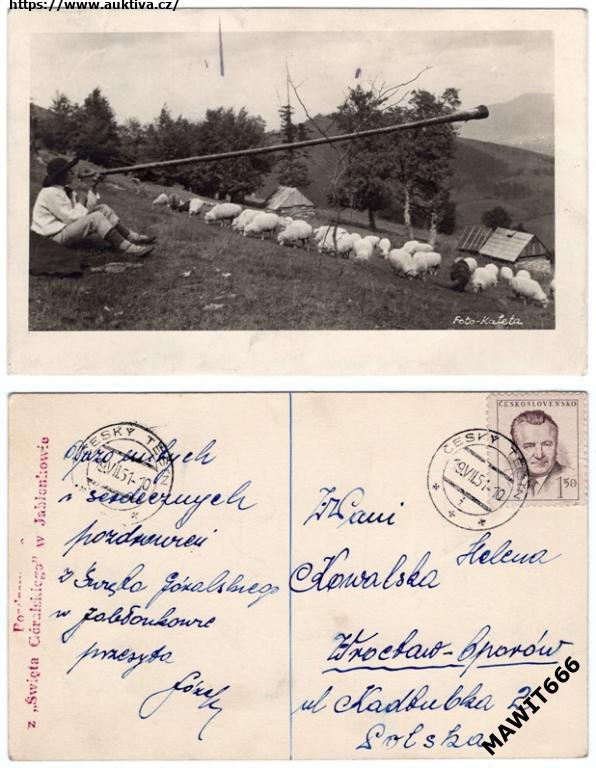 https://www.auktiva.cz/
Foto-Kaleta
z „Święta Góralskiego” w Jabłonkowie
ČESKÝ TĚŠÍN
9.VII.51-20
Dużo miłych
i serdecznych
pozdrowień
z Święta Góralskiego
w Jabłonkowie
przesyła
Józek
ČESKÝ TĚŠÍN
9.VII.51-20
ČESKOSLOVENSKO
1.50
WPani
Helena
Kowalska
Wrocław-Oporów
ul Kadłubka 2
Polska
MAWIT666